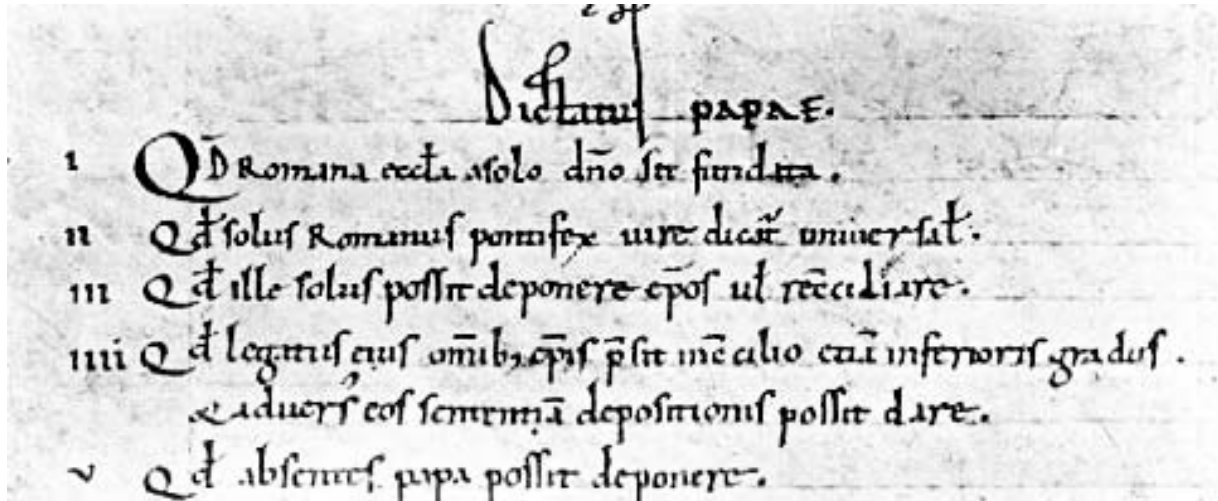 Dictatus papae.
I QD Romana eccła a solo dño sit fundata.
II Qđ solus Romanus pontifex iure dicat᷑ universał.
III Qđ ille solus possit deponere ep̄os uł recc̄iliare.
IIII Qđ legatus eius omīb; ep̄is p̄sit inc̄cilio etiā inferioris gradus.
& advers᷒ eos sententiā depositionis possit dare.
V Qđ absentes papa possit deponere.